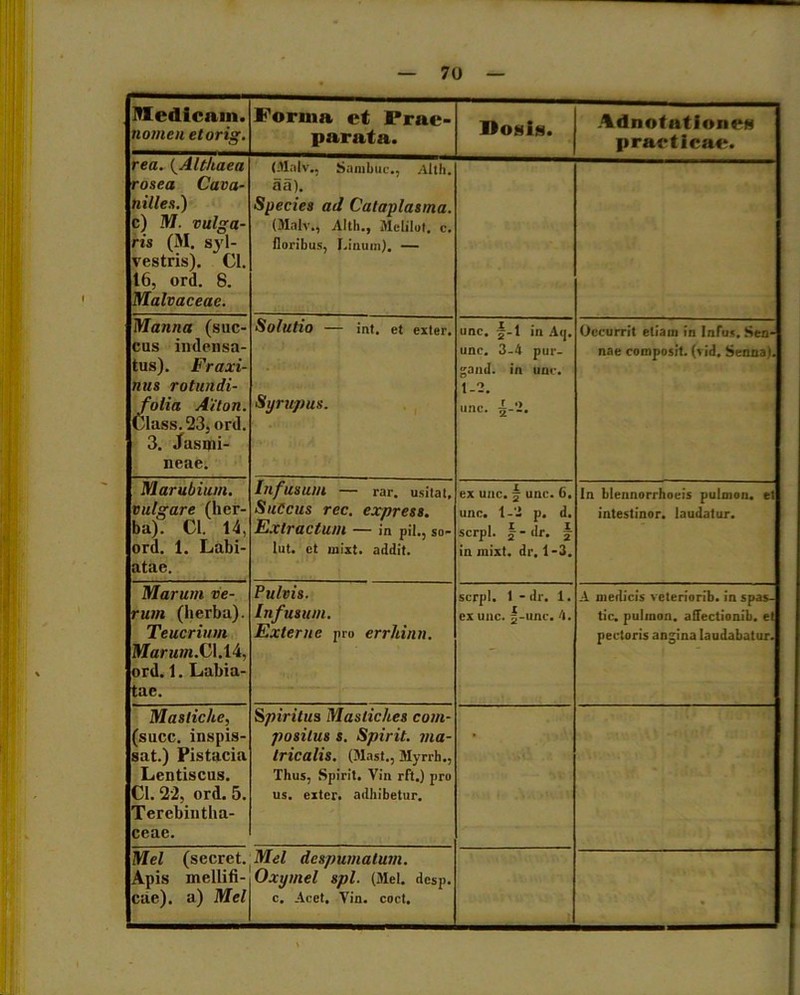 — 70 —
Medicam.
nomen et orig.
Forma et Prae-
parata.
Dosis.
Adnotationes
practicae.
rea. (Althaea
rosea Cava-
nilles.)
c) M. vulga-
ris (M. syl-
vestris). Cl.
16, ord. 8.
Malvaceae.
(Malv., Sambuc., Alth.
āā).
Species ad Cataplasma.
(Malv., Alth., Melilot. c.
floribus, Linum). —
Manna (suc-
cus indensa-
tus). Fraxi-
nus rotundi-
folia Aïton.
Class. 23, ord.
3. Jasmi-
neae.
Solutio — int. et exter.
Syrupus.
unc. ½-1 in Aq.
unc. 3-4 pur-
gand. in unc.
1-2.
unc. ½-2.
Occurrit etiam in Infus. Sen-
nae composit. (vid. Senna).
Marubium.
vulgare (her-
ba). Cl. 14,
ord. 1. Labi-
atae.
Infusum — rar. usitat.
Succus rec. express.
Extractum — in pil., so-
lut. et mixt. addit.
ex unc. ½ unc. 6.
unc. 1-2 p. d.
scrpl. ½ - dr. ½
in mixt. dr. 1-3.
In blennorrhoeis pulmon. et
intestinor. laudatur.
Marum ve-
rum (herba).
Teucrium
Marum. Cl.14,
ord. 1. Labia-
tae.
Pulvis.
Infusum.
Externe pro errhinn.
scrpl. 1 - dr. 1.
ex unc. ½-unc. 4.
A medicis veteriorib. in spas-
tic. pulmon. affectionib. et
pectoris angina laudabatur.
Mastiche,
(succ. inspis-
sat.) Pistacia
Lentiscus.
Cl. 22, ord. 5.
Terebintha-
ceae.
Spiritus Mastiches com-
positus s. Spirit. ma-
tricalis. (Mast., Myrrh.,
Thus, Spirit. Vin rft.) pro
us. exter. adhibetur.
Mel (secret.
Apis mellifi-
cae). a) Mel
Mel despumatum.
Oxymel spl. (Mel. desp.
c. Acet. Vin. coct.